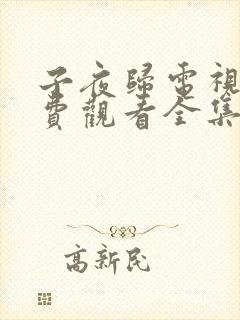 子夜歸電視
費觀看全集
高新民